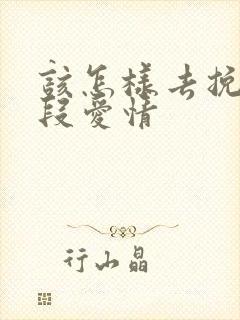 該怎樣去挽
段愛情
行山晶